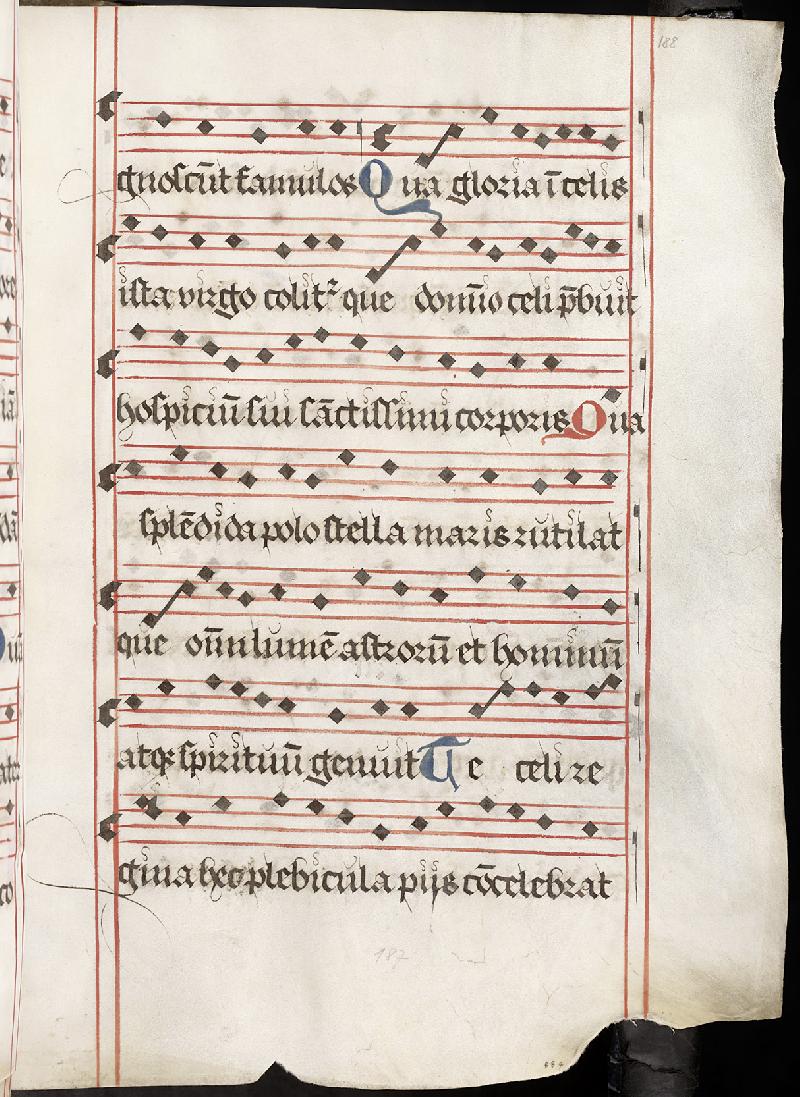 188
gnoscūt famulos Qua gloria ī celis
ista virgo colitꝰ que domīo celi p̄buit
hospiciū sui sāctissimi corporis Qua
splēdida polo stella maris rutilat
que omniū lumē astrorū et hominū
atqꝫ spirituū genuit Te celi re
gina hec plebicula pijs cōcelebrat
187